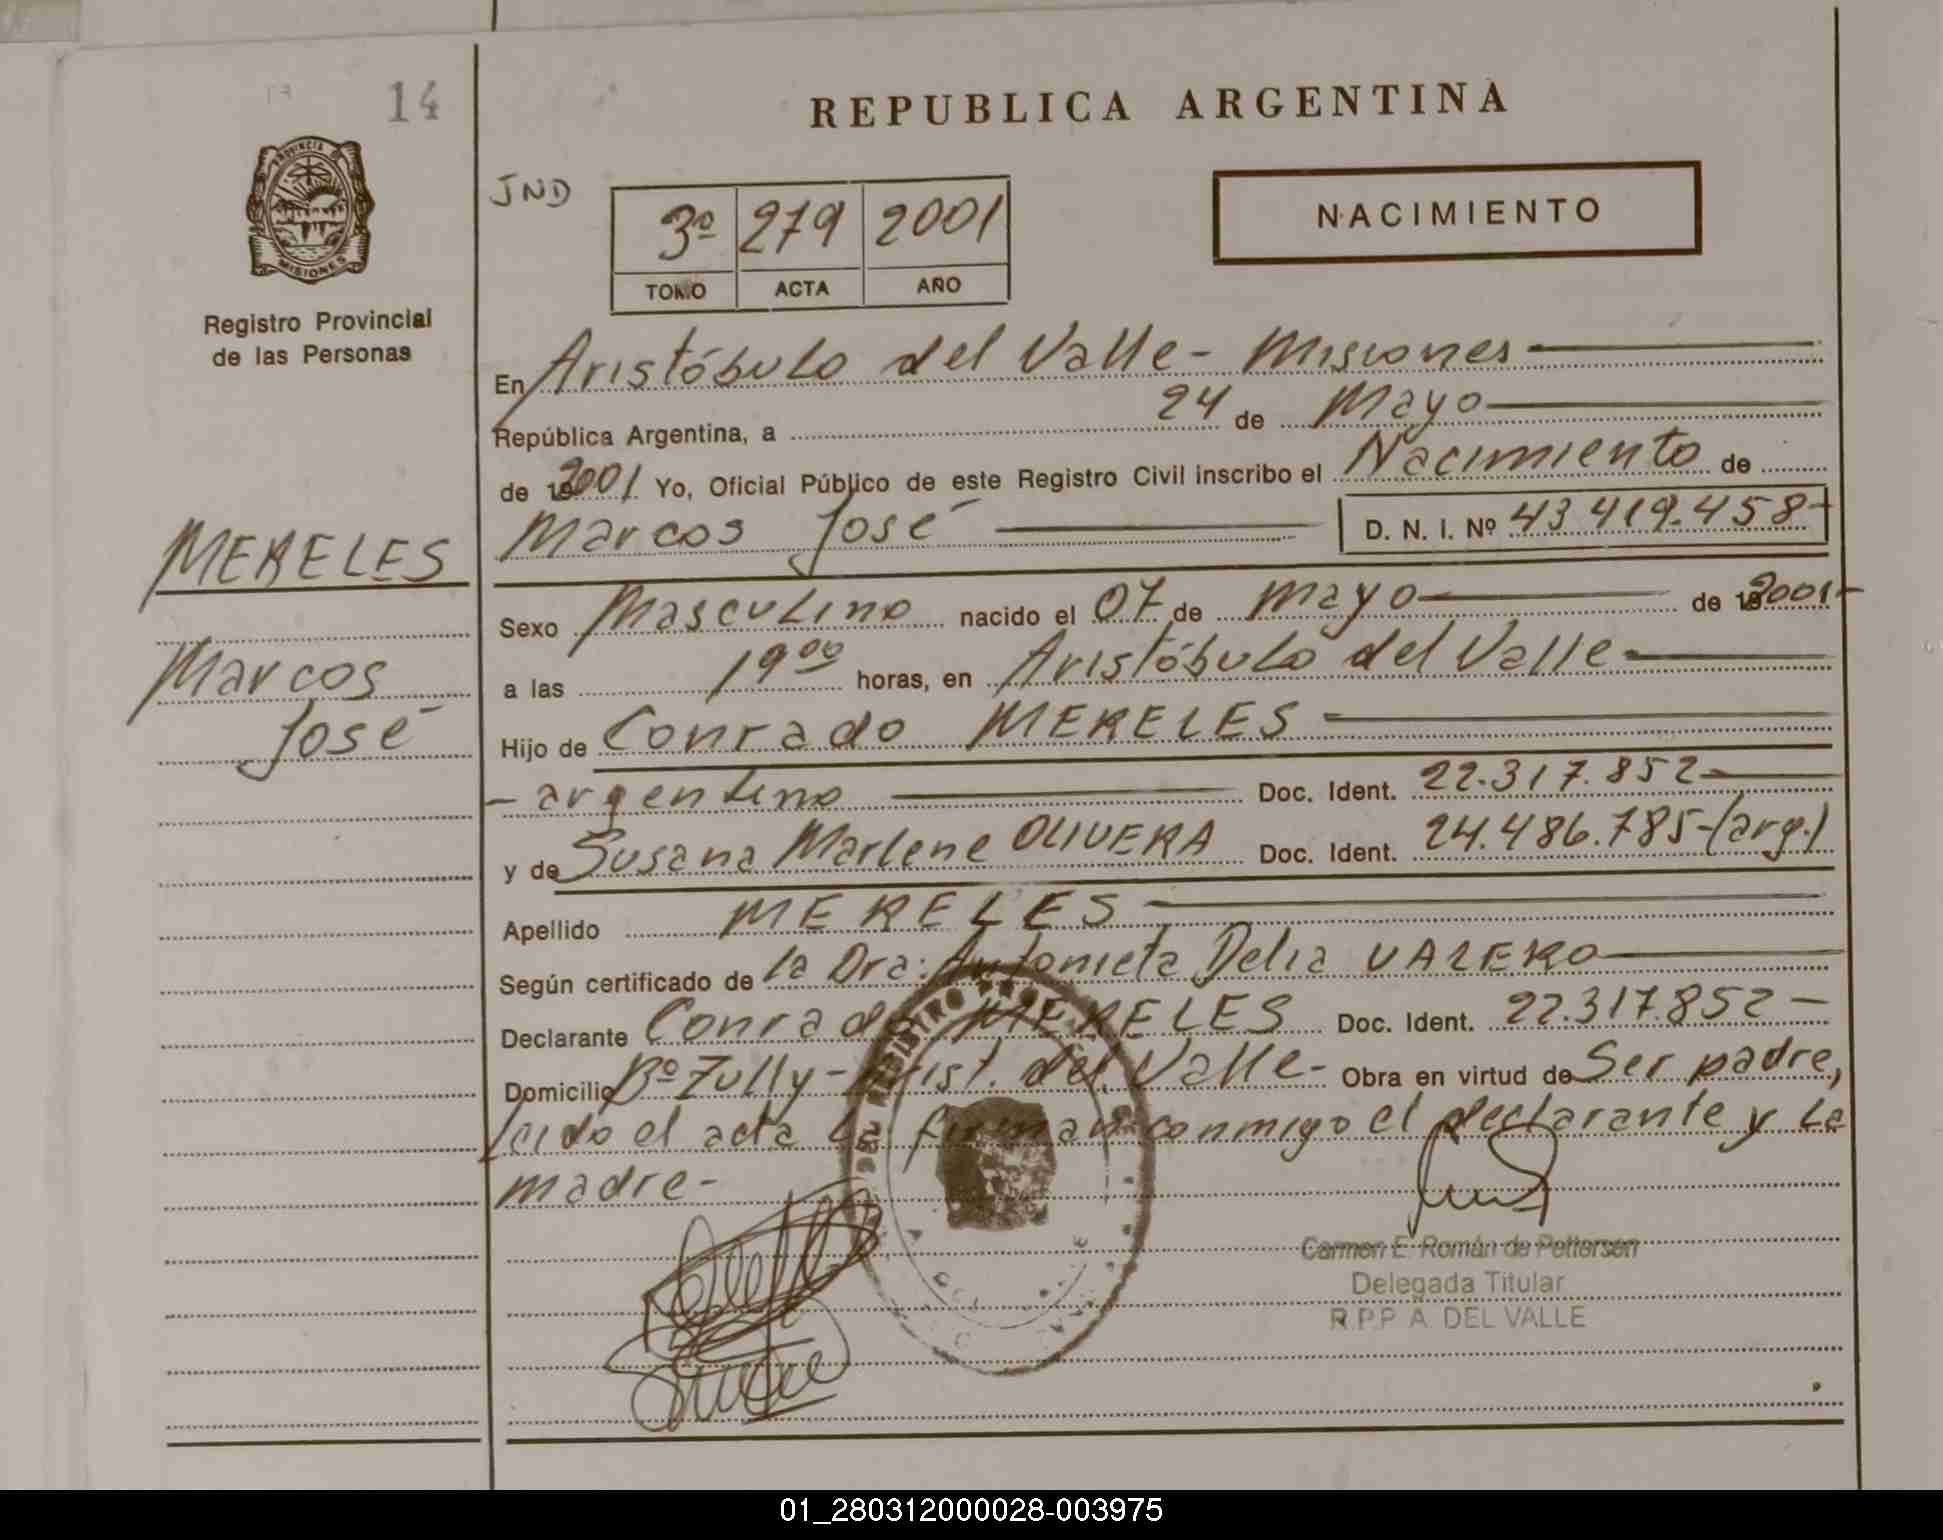 14
REPUBLICA ARGENTINA
PROVINCIA DE
MISIONES
Registro Provincial
de las Personas
JND
3º 279 2001
TOMO ACTA AÑO
NACIMIENTO
En Aristóbulo del Valle - Misiones
República Argentina, a 24 de Mayo
de 192001 Yo, Oficial Público de este Registro Civil inscribo el Nacimiento de
Marcos José D. N. I. Nº 43.419.458-
MERELES
Marcos
José
Sexo Masculino nacido el 07 de mayo de 192001-
a las 19 00 horas, en Aristóbulo del Valle-
Hijo de Conrado MERELES
- argentino Doc. Ident. 22.317.852-
y de Susana Marlene OLIVERA Doc. Ident. 24.486.785-(arg.)
Apellido MERELES
Según certificado de la Dra: Antonieta Delia VALERO
Declarante Conrado MERELES Doc. Ident. 22.317.852-
Domicilio Bº Zully - Arist. del Valle- Obra en virtud de Ser padre,
leido el acta la firman conmigo el declarante y la
madre-
Carmen E. Román de Pettersen
Delegada Titular
R.P.P A. DEL VALLE
01_280312000028-003975